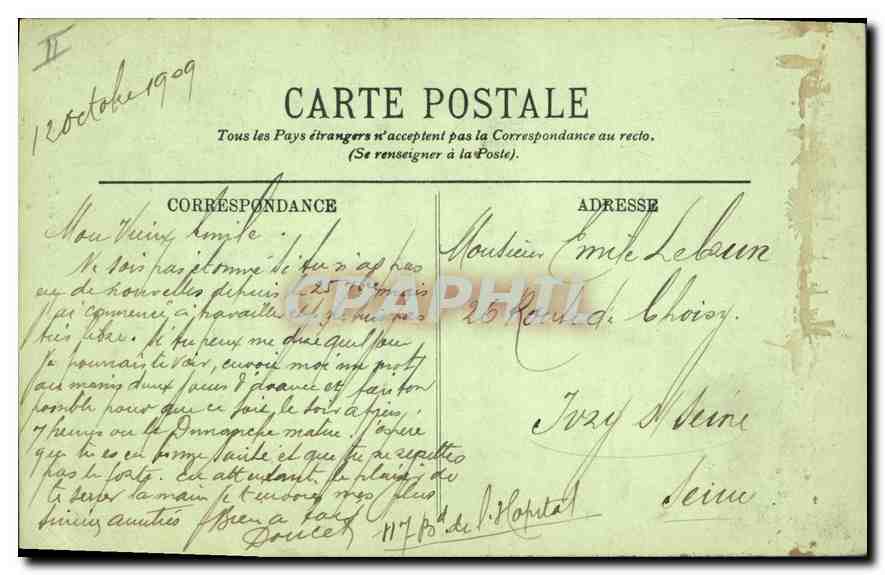 II
12 octobre 1909
CARTE POSTALE
Tous les Pays étrangers n'acceptent pas la Correspondance au recto.
(Se renseigner à la Poste).
CORRESPONDANCE
Mon Vieux Emile.
Ne sois pas étonné si tu n'as pas
eu de nouvelles depuis le 25 mais
j'ai commencé à travailler et je suis pas
très libre. Si tu peux me dire quel jour
je pourrais te voir, envoie moi un mot
au moins deux jours d'avance et fais ton
possible pour que ce soit le soir après
7 heures ou le Dimanche matin. J'espère
que tu es en bonne santé et que tu ne
pas le forte. En attendant le plaisir de
te serrer la main je t'envoie mes plus
sincères amitiés Bien à toi
Doucet
117 Bd de l'Hopital
ADRESSE
Monsieur Emile Lebrun
26 Route de Choisy.
Ivry s/ Seine
Seine
CPAPHIL